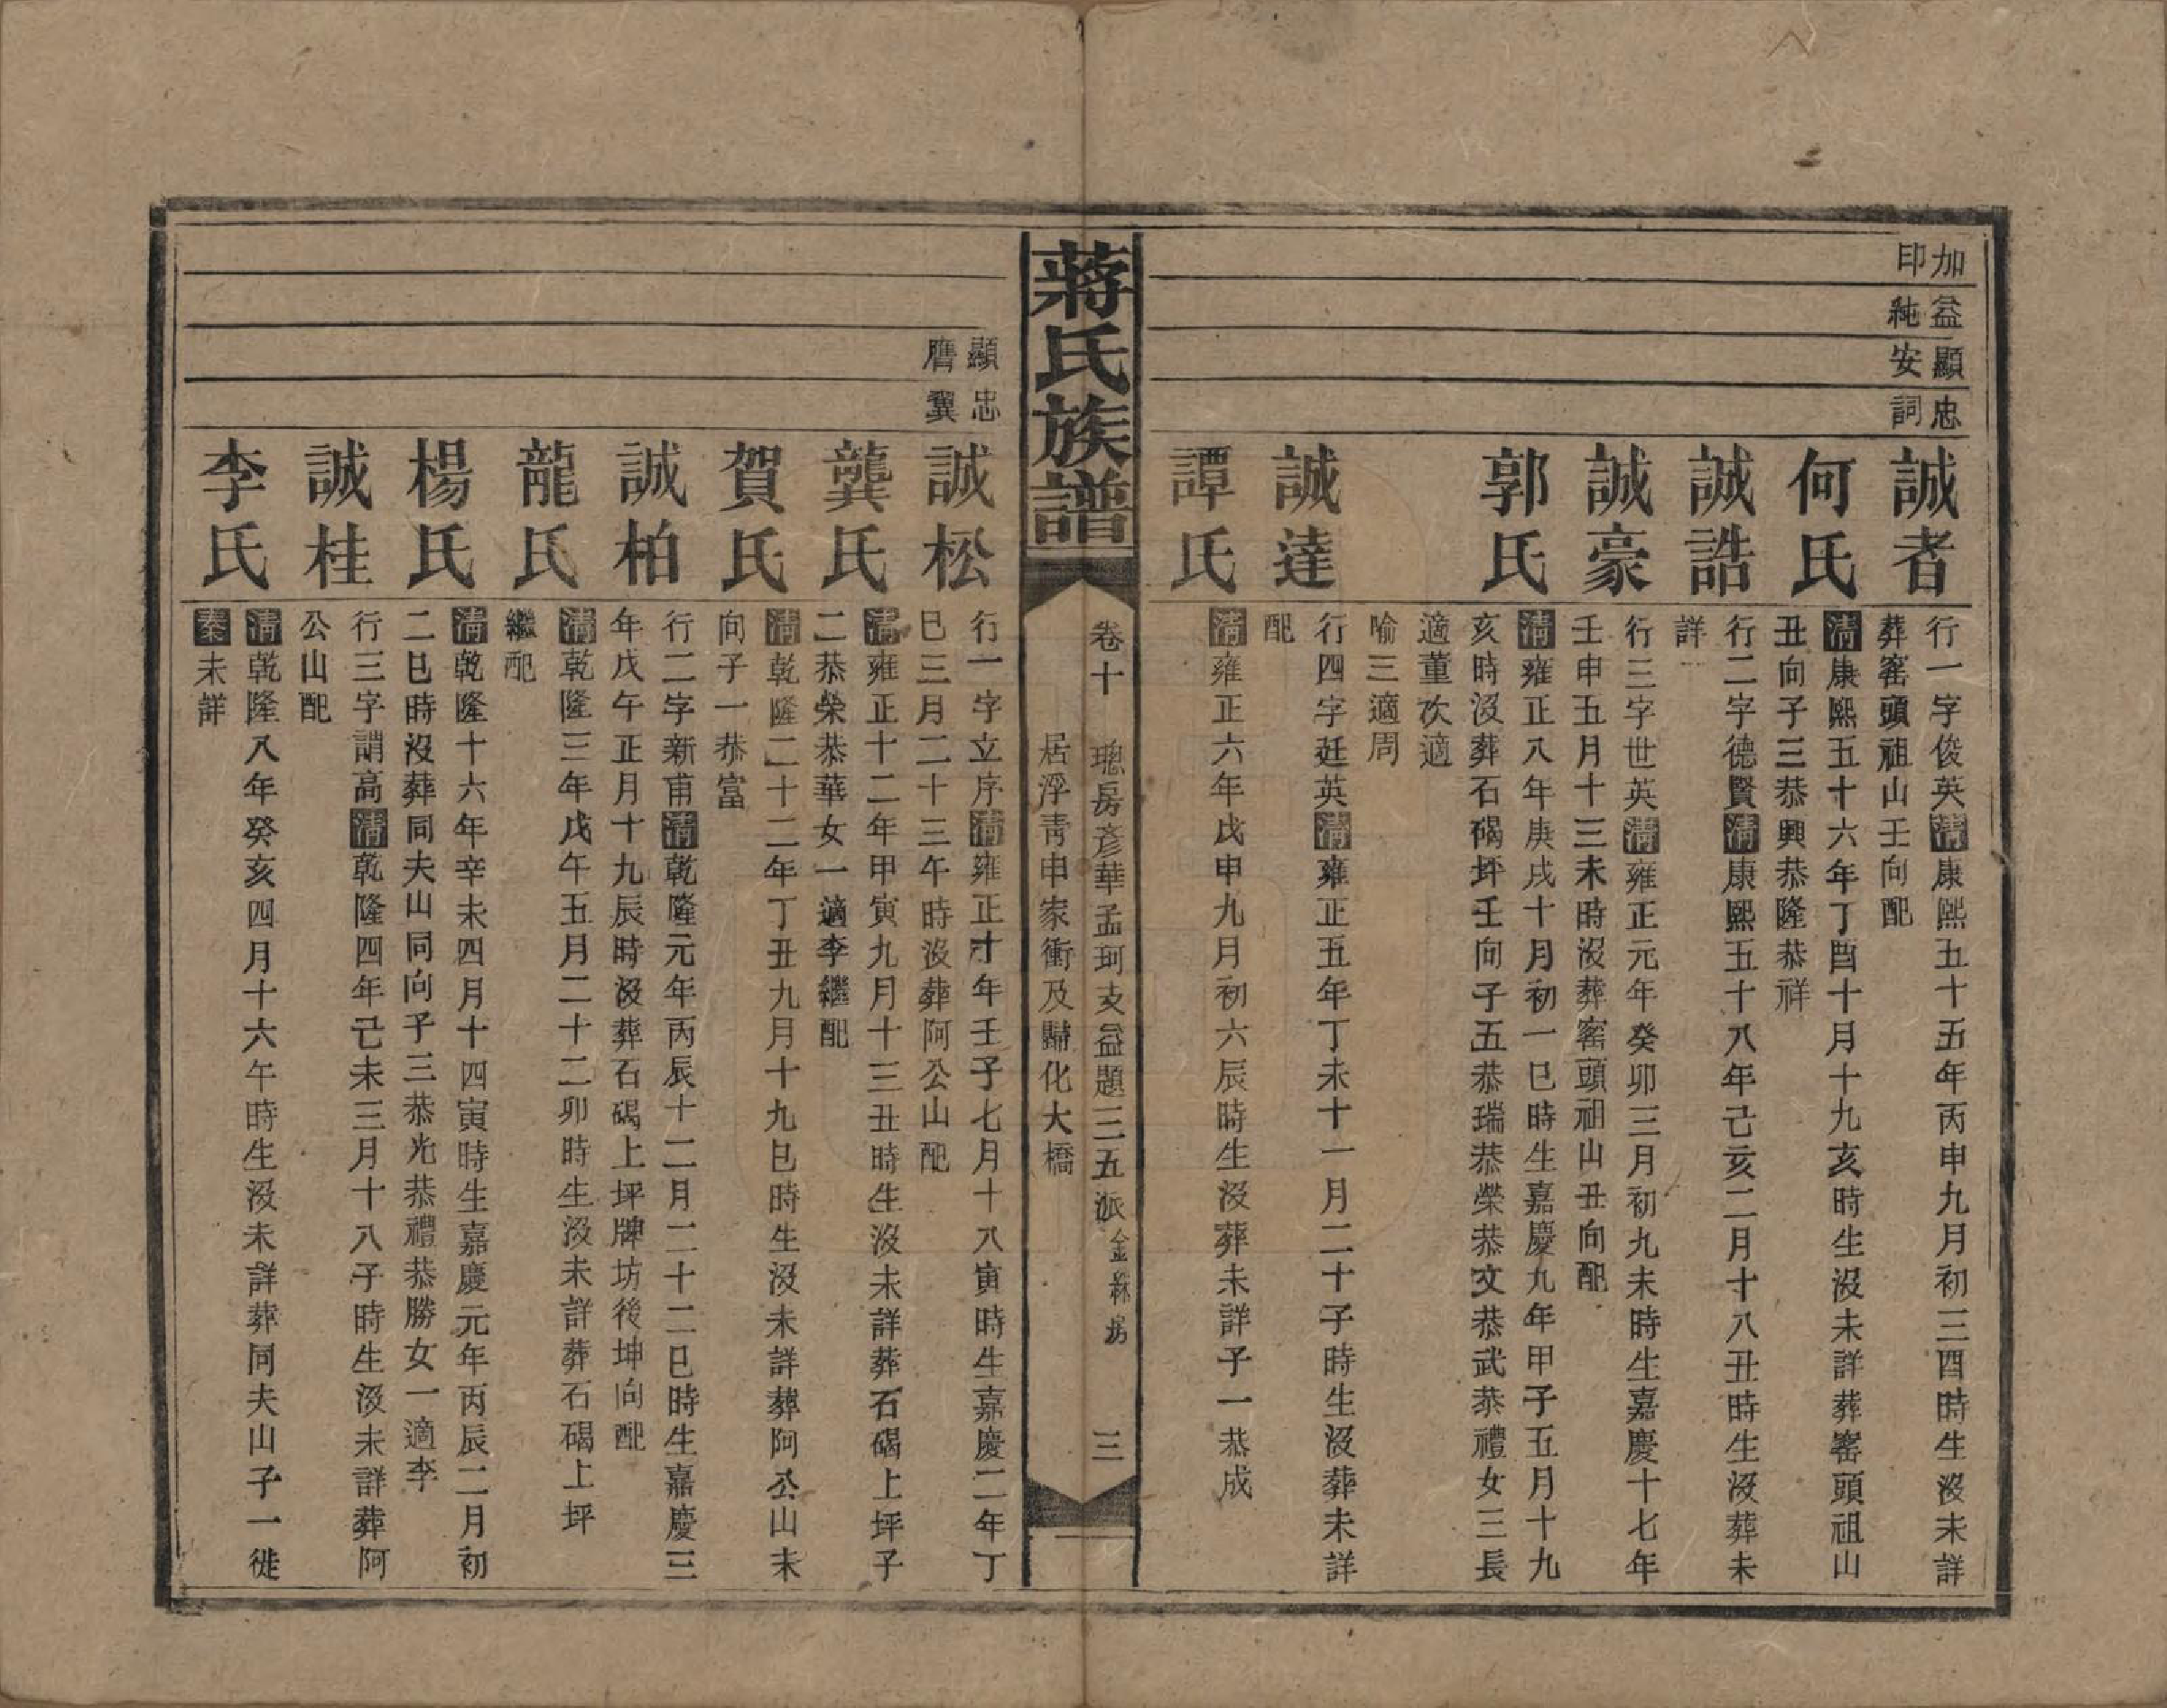 加印
益純
顯安
忠詞
誠者
行一字俊英清康熙五十五年丙申九月初三酉時生沒未詳
葬窰頭祖山壬向配
何氏
清康熙五十六年丁酉十月十九亥時生沒未詳葬窰頭祖山
丑向子三恭興恭隆恭祥
誠誥
行二字德賢清康熙五十八年己亥二月十八丑時生沒葬未
詳
誠豪
行三字世英清雍正元年癸卯三月初九未時生嘉慶十七年
壬申五月十三未時沒葬窰頭祖山丑向配
郭氏
清雍正八年庚戌十月初一巳時生嘉慶九年甲子五月十九
亥時沒葬石碣坪壬向子五恭瑞恭榮恭文恭武恭禮女三長
適董次適
喻三適周
誠達
行四字廷英清雍正五年丁未十一月二十子時生沒葬未詳
配
譚氏
清雍正六年戊申九月初六辰時生沒葬未詳子一恭成
蔣氏族譜
卷十
璁房彥華孟珂支益題三五派金秝房
居浮靑申家衝及歸化大橋
三
顯膺
忠翼
誠松
行一字立序清雍正十年壬子七月十八寅時生嘉慶二年丁
巳三月二十三午時沒葬阿公山配
龔氏
清雍正十二年甲寅九月十三丑時生沒未詳葬石碣上坪子
二恭榮恭華女一適李繼配
賀氏
清乾隆二十二年丁丑九月十九巳時生沒未詳葬阿公山未
向子一恭富
誠柏
行二字新甫清乾隆元年丙辰十二月二十二巳時生嘉慶三
年戊午正月十九辰時沒葬石碣上坪牌坊後坤向配
龍氏
清乾隆三年戊午五月二十二卯時生沒未詳葬石碣上坪
繼配
楊氏
清乾隆十六年辛未四月十四寅時生嘉慶元年丙辰二月初
二巳時沒葬同夫山同向子三恭光恭禮恭勝女一適李
誠桂
行三字謂高清乾隆四年己未三月十八子時生沒未詳葬阿
公山配
李氏
清乾隆八年癸亥四月十六午時生沒未詳葬同夫山子一徙
秦未詳